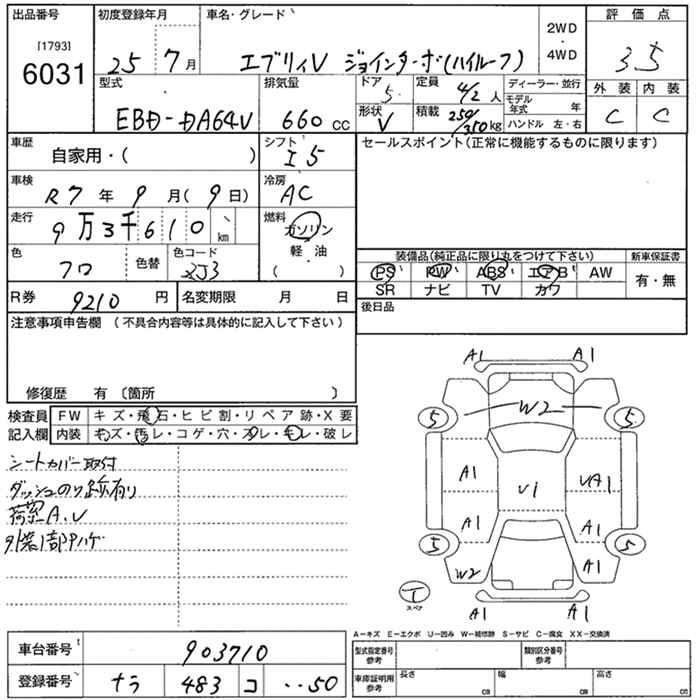 出品番号
[1793]
6031
初度登録年月
25 7月
車名・グレード
エブリイV ジョインターボ(ハイルーフ)
2WD
・
4WD
評価点
3.5
外装 内装
C C
型式
EBD-DA64V
排気量
660 cc
ドア
5
形状
V
定員
4/2人
積載
250/350kg
ディーラー・並行
モデル年式 年
ハンドル 左・右
車歴
自家用・( )
シフト
I5
車検
R7年9月(9日)
冷房
AC
走行
9万3千610km
燃料
ガソリン
軽・油
( )
色
クロ
色替
色コード
ZJ3
R券
9210円
名変期限 月 日
セールスポイント(正常に機能するものに限ります)
装備品(純正品に限り丸をつけて下さい)
PS PW ABS エアB AW
SR ナビ TV カワ
新車保証書
有・無
後日品
注意事項申告欄 (不具合内容等は具体的に記入して下さい)
修復歴 有 〔箇所 〕
検査員記入欄
FW キズ・飛石・ヒビ割・リペア跡・X要
内装 キズ・汚レ・コゲ・穴・スレ・キレ・破レ
シートカバー取付
ダッシュのり跡有り
荷室A.U
外装1部サハゲ
A1 A1
5 W2 5
A1 U1 UA1
A1 A1
5 5
W2 A1
T
スペア
A1 A1
A-キズ E-エクボ U-凹み W-補修跡 S-サビ C-腐食 XX-交換済
車台番号
903710
登録番号
ナラ 483 コ ‥50
型式指定番号
参考
類別区分番号
参考
車庫証明用
参考
長さ cm
幅 cm
高さ cm